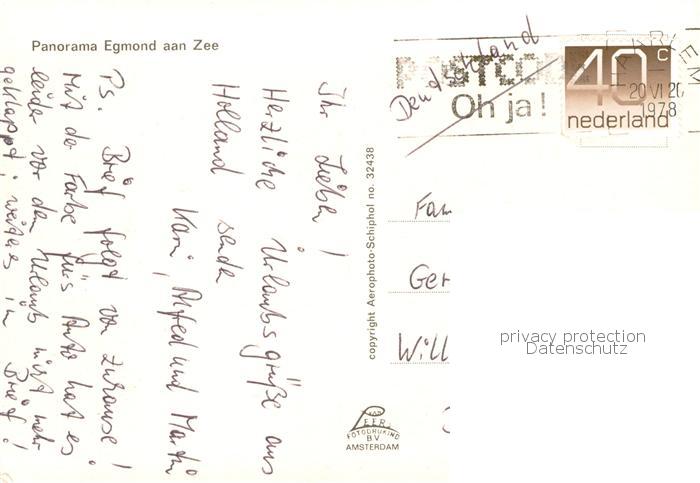 Panorama Egmond aan Zee
Ihr Lieben!
Herzliche Urlaubsgrüße aus
Holland sende
Kari, Alfred und Martin
Ps. Brief folgt von zuhause!
Mit der Farbe fürs Auto hat es
leider vor dem Urlaub nicht mehr
geklappt; weiteres im Brief!
copyright Aerophoto-Schiphol no. 32438
Deutschland
POSTCODE
Oh ja!
40c
nederland
20 VI 20
1978
Fam
Ger
Will
privacy protection
Datenschutz
VAN
LEER'S
FOTODRUKIND
B.V.
AMSTERDAM